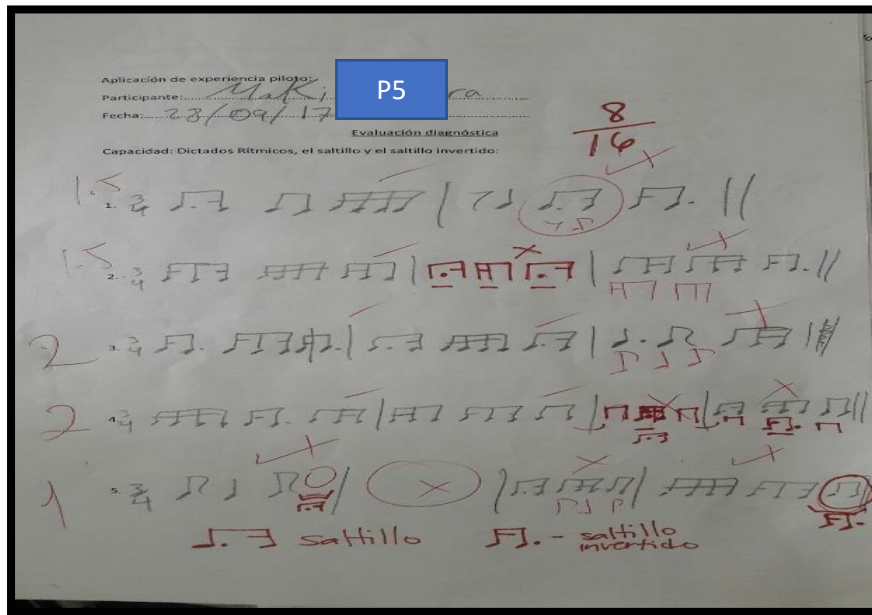 Aplicación de experiencia piloto:
Participante: Maki P5 ra
Fecha: 23/09/17
Evaluación diagnóstica
8
16
Capacidad: Dictados Rítmicos, el saltillo y el saltillo invertido:
1.5 1. 3/4
1.5 2. 3/4
2 3. 3/4
2 4. 3/4
1 5. 3/4
saltillo - saltillo
invertido